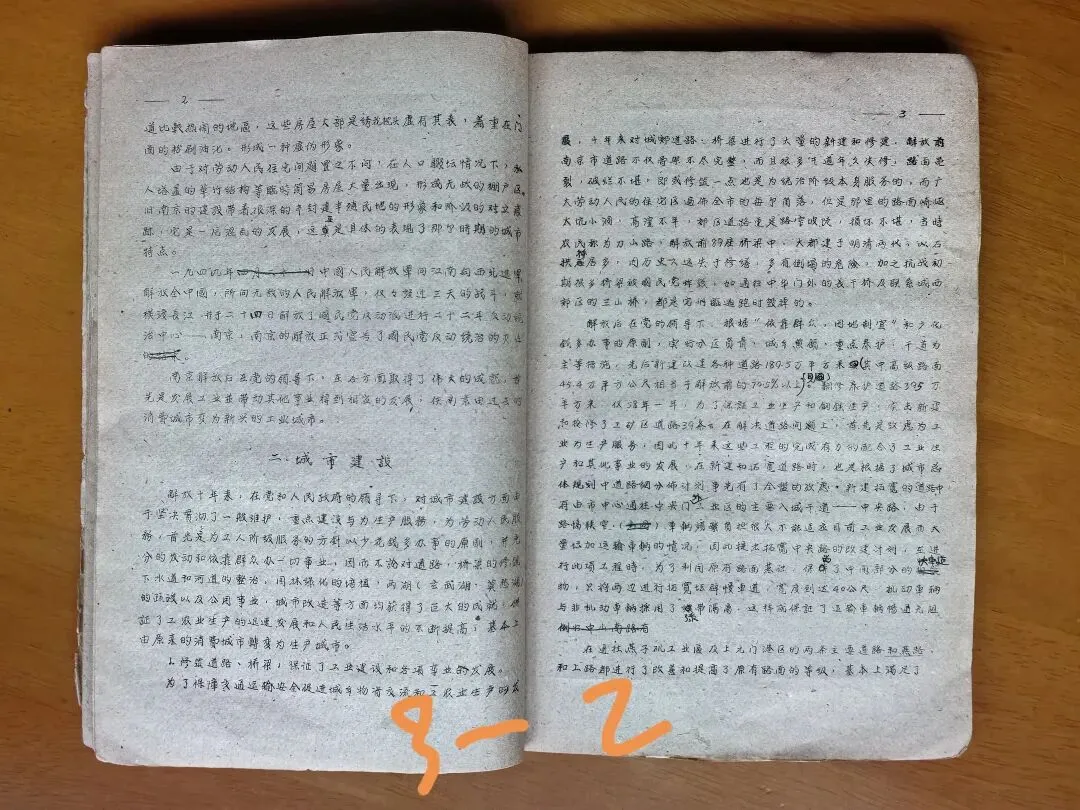 — 2 —
道比較热闹的地區，这些房屋大都是绣花枕头虚有其表，着重在门
面的粉刷油化。形成一种虚伪形象。
由于对劳动人民住宅间题置之不问，在人口膨坛情况下，私
人搭盖的草竹结构等临时简易房屋大量出现，形成无数的棚户区。
旧南京的建設带着很深的半封建半殖民地的形象和阶级的对立痕
跡，它是一片混乱的发展，这正是具体的表现了那个时期的城市
特点。
一九四九年 中國人民解放軍向江南向西北進軍
解放全中國，所向无敌的人民解放軍，仅々经过三天的战斗，就
横渡長江 并于二十四日解放了國民党反动派进行二十二年反动统
治中心——南京，南京的解放正式宣告了國民党反动统治的灭亡
南京解放后在党的领导下，在各方面取得了伟大的成就，首
先是发展工业並带动其他事业得到相应的发展，使南京由过去的
消费城市变为新兴的工业城市。
二．城市建設
解放十年来，在党和人民政府的领导下，对城市建設方面由
于坚决贯彻了一般维护，重点建设与为生产服务，为劳动人民服
務，首先是为工人阶级服务的方針以少花钱多办事的原则，并充
分的发动和依靠群众办一切事业，因而不論对道路，桥梁的修建
下水道和河道的整治，园林绿化的培植，两湖（玄武湖，莫愁湖）
的疏浚以及公用事业，城市改造等方面均获得了巨大的成就，保
証了工农业生产的迅速发展和人民生活水平的不断提高，基本上
由原来的消费城市轉变为生产城市。
1.修筑道路、桥梁，保证了工业建设和各项事业的发展。
为了保障交通运输安全促进城乡物资交流和工农业生产的发
— 3 —
展，十年来对城鄉道路，桥梁进行了大量的新建和修建，解放前
南京市道路不仅香那不尽完整，而且极多可道年久失修，路面龟
裂，破烂不堪，即或修盛一点也是为统治阶级本身服务的，而广
大劳动人民的住宅区遍佈全市的每个角落，但是那里的路面崎岖
大坑小洞，高漥不平，郊区道路更是路窄坡陡，損坏不堪，当时
农民称为刀山路，解放前39座桥梁中，大都建于明清两代，以石
拱桥居多，内方里久远失于修缮，多有倒塌的危險，加之抗战初
期很多桥梁被國民党炸毁，如通往中华门外的長干桥及联系城西
郊区的三山桥，都是它們临逃跑时毁掉的。
解放后在党的领导下，根据“依靠群众，因地制宜”和少化
钱多办事的原则，实行分区負責，城乡兼顾，重点养护，平道为
主等措施，先后新建改建各种道路189.5万平方米(其中高级路面
45.4万平方公尺相当于解放前的70.5%以上)。翻修养护道路395万
平方米，仅58年一年，为了保証工业生产和钢铁生产，突击新建
和抢修了工矿区道路39条。在解决道路问题上，首先是攷虑为工
业为生产服务，因此十年来这些工程的完成有力的配合了工业生
产和其他事业的发展，在新建和拓寬道路时，也是根据了城市总
体规划中道路網分佈计划事先有了全盤的攷虑。新建拓寬的道路中
有由市中心通往中央门外业区的主要入城干道——中央路，由于
路幅狭窄， 車輌頻繁負担很大不能适应目前工业发展而大
量增加运輸車輌的情况，因此提出拓寬中央路的改建计划，在进
行此项工程时，为了利用原有路面基础，保留了中间部分的快車道
物，只将两边进行拓寬増辟慢車道，寬度到达40公尺，机动車輌
与非机动車輌採用了绿带隔离，这样就保証了运输車輌暢通无阻
在通往燕子矶工业區及上元门港区的两条主要道路和燕路，
和上路都进行了改善和提高了原有路面的等级，基本上满足了
9-2